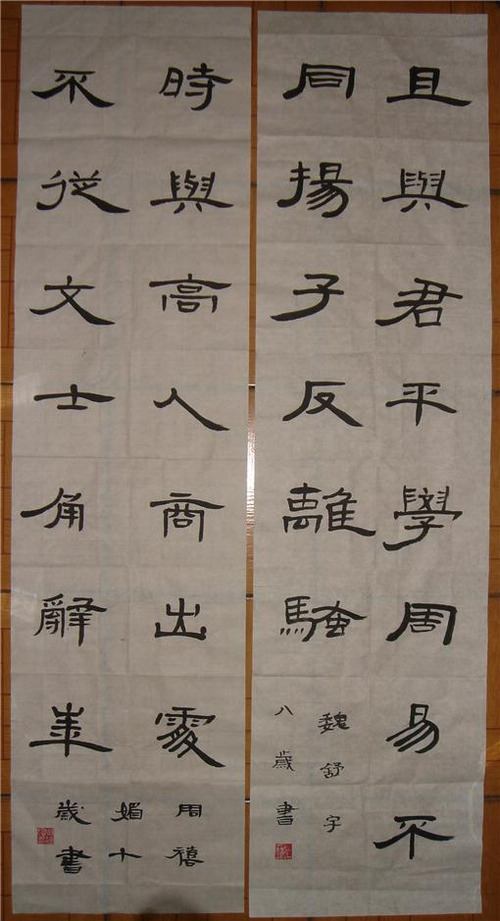 且與君平學周易不
同揚子反離騷
魏舒宇
八歲書
時與高人商出處
不從文士角辭華
周禧
媚十
歲書